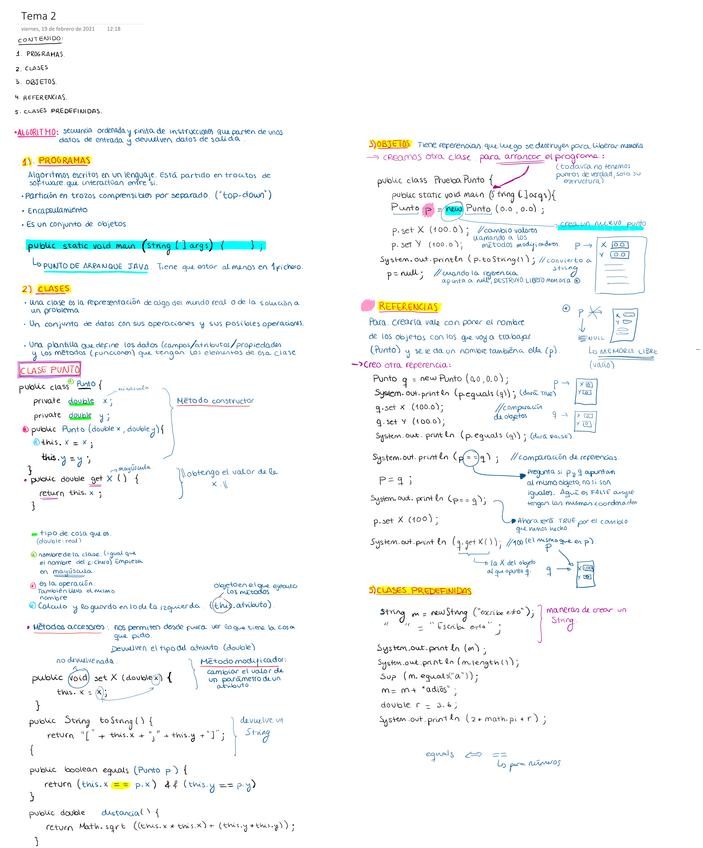 Tema 2
viernes, 19 de febrero de 2021 12:18
CONTENIDO:
1. PROGRAMAS.
2. CLASES
3. OBJETOS.
4. REFERENCIAS.
5. CLASES PREDEFINIDAS.
• ALGORITMO: secuencia ordenada y finita de instrucciones que parten de unos
datos de entrada y devuelven datos de salida.
1) PROGRAMAS
Algoritmos escritos en un lenguaje. Está partido en trocitos de
software que interactúan entre si.
• Partición en trozos comprensibles por separado ("top-down")
• Encapsulamiento
• Es un conjunto de objetos
public static void main (String [] args) { };
↳ PUNTO DE ARRANQUE JAVA Tiene que estar al menos en 1 fichero.
2) CLASES
• Una clase es la representación de algo del mundo real o de la solución a
un problema
• Un conjunto de datos con sus operaciones y sus posibles operaciones.
• Una plantilla que define los datos (campos/atributos/propiedades
y los métodos (funciones) que tengan los elementos de esa clase
CLASE PUNTO
public class Punto {
minúscula
private double x;
Método constructor
private double y;
public Punto (double x, double y){
this.x = x;
this.y = y;
}
mayúscula
• public double get X () {
return this.x;
}
// obtengo el valor de la
x. //
tipo de cosa que es.
(double: real)
nombre de la clase. (igual que
el nombre del fichero) Empieza
en mayúscula
es la operación.
También lleva el mismo
nombre
Objeto en el que ejecuto
los métodos
Cálculo y lo guardo en lo de la izquierda (this.atributo)
• Métodos accesores: nos permiten desde fuera ver lo que tiene la cosa
que pido.
Devuelven el tipo del atributo (double)
no devuelve nada
public void set X (double x) {
this.x = x;
}
Método modificador:
cambiar el valor de
un parámetro de un
atributo.
public String toString () {
return "[" + this.x + "," + this.y + "]";
{
devuelve un
String
public boolean equals (Punto p) {
return (this.x == p.x) && (this.y == p.y)
}
public double distancia () {
return Math.sqrt ((this.x * this.x) + (this.y * this.y));
}
3) OBJETOS Tiene referencias que luego se destruyen para liberar memoria
→ creamos otra clase para arrancar el programa:
(todavía no tenemos
puntos de verdad, solo su
estructura)
public class Prueba Punto {
public static void main (String [] args){
Punto p = new Punto (0.0, 0.0);
crea un nuevo punto
p.set X (100.0); // cambio valores
llamando a los
métodos modificadores
p.set Y (100.0);
p → X 0.0
Y 0.0
System.out.println (p.toString ()); // convierto a
string
p = null; // cuando la referencia
apunta a null, DESTRUYO LIBERO MEMORIA
REFERENCIAS
Para crearla vale con poner el nombre
de los objetos con los que voy a trabajar
(Punto) y se le da un nombre también a ella (p).
p
NULL
LA MEMORIA LIBRE
(vacío)
→ Creo otra referencia:
Punto q = new Punto (0.0, 0.0);
System.out.println (p.equals (q)); (dará TRUE)
q.set X (100.0); // comparación
de objetos
q.set Y (100.0);
System.out.println (p.equals (q)); (dará FALSE)
p →
q →
System.out.println (p == q); // comparación de referencias.
Pregunta si p y q apuntan
al mismo objeto, no si son
iguales. Aquí es FALSE aunque
tengan las mismas coordenadas
p = q;
System.out.println (p == q);
Ahora está TRUE por el cambio
que hemos hecho
p.set X (100);
System.out.println (q.get X ()); // 100 (el mismo que en p).
↳ la X del objeto
al que apunta q.
p
q →
5) CLASES PREDEFINIDAS
String m = new String ("escribe esto");
" " = "Escribe esto";
maneras de crear un
String.
System.out.println (m);
System.out.println (m.length ());
Sup (m.equals ("a"));
m = m + "adiós";
double r = 3.6;
System.out.println (2 * math.pi * r);
equals ⇔ ==
↳ para números